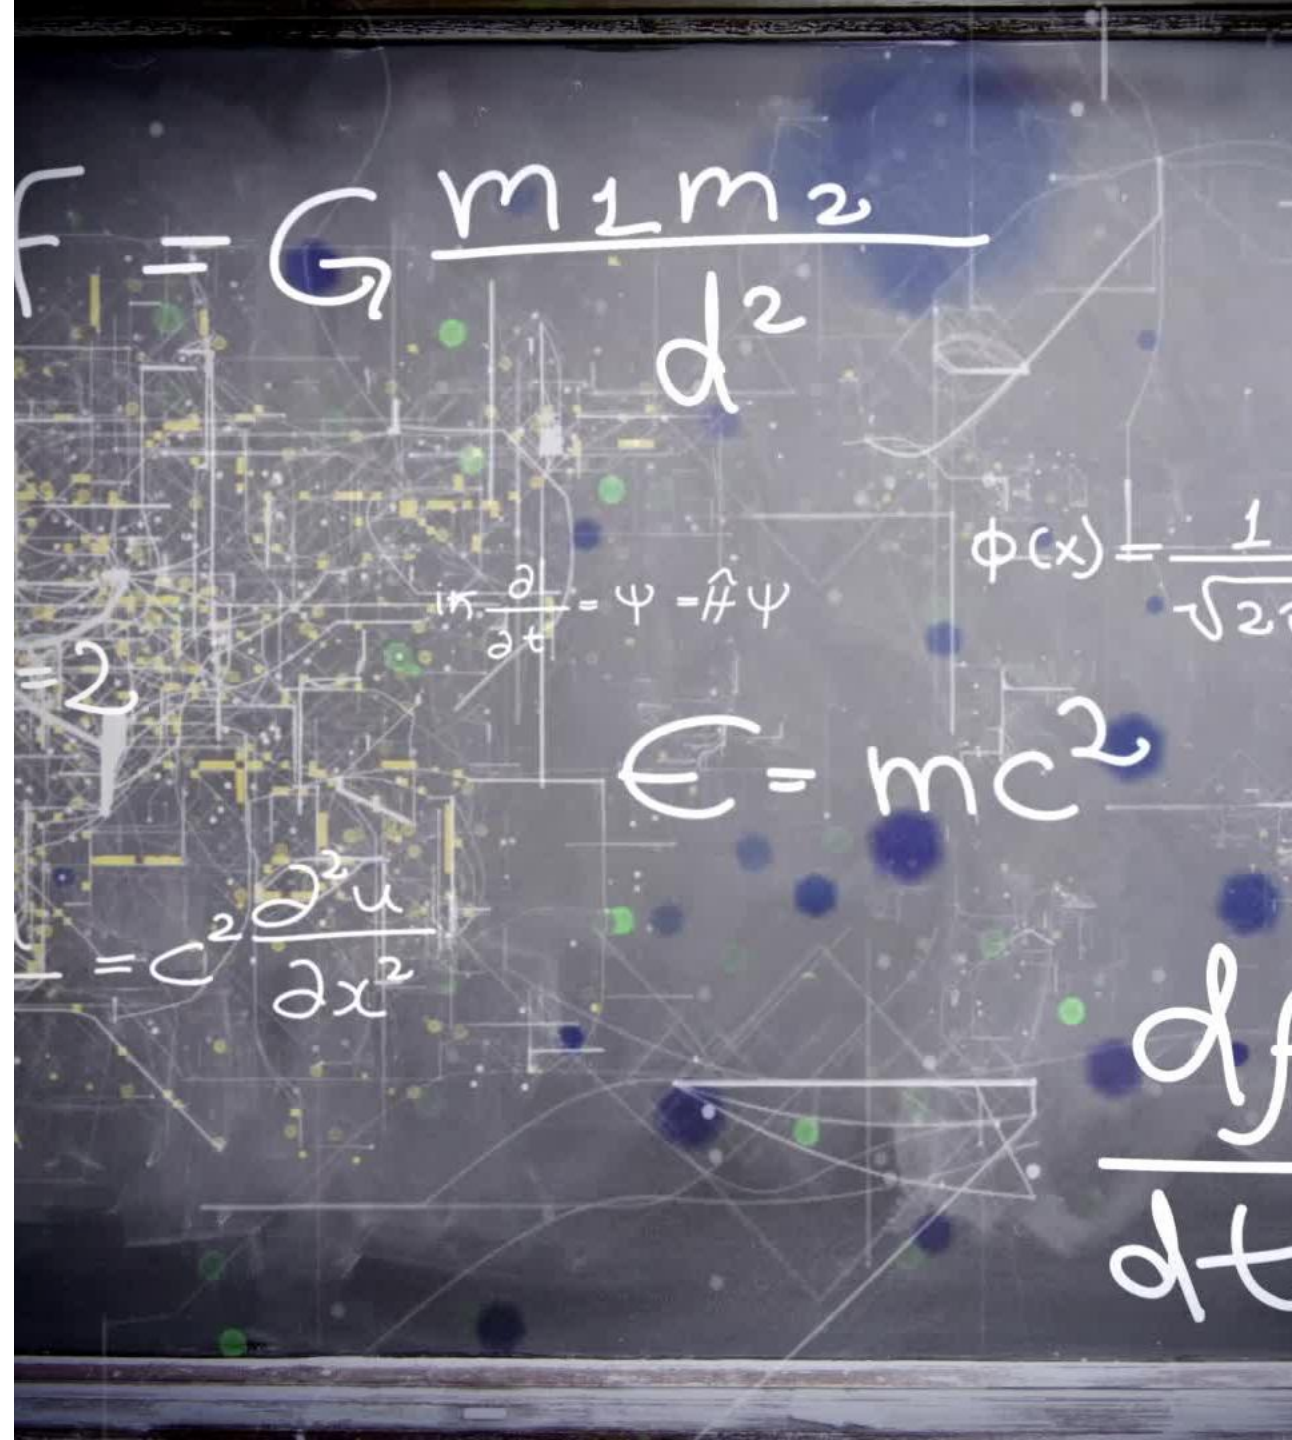 F = G m1 m2 / d²
iħ ∂/∂t = Ψ = Ĥ Ψ
ϕ(x) = 1 / √2
= 2
E = mc²
= c² ∂²u / ∂x²
df / dt